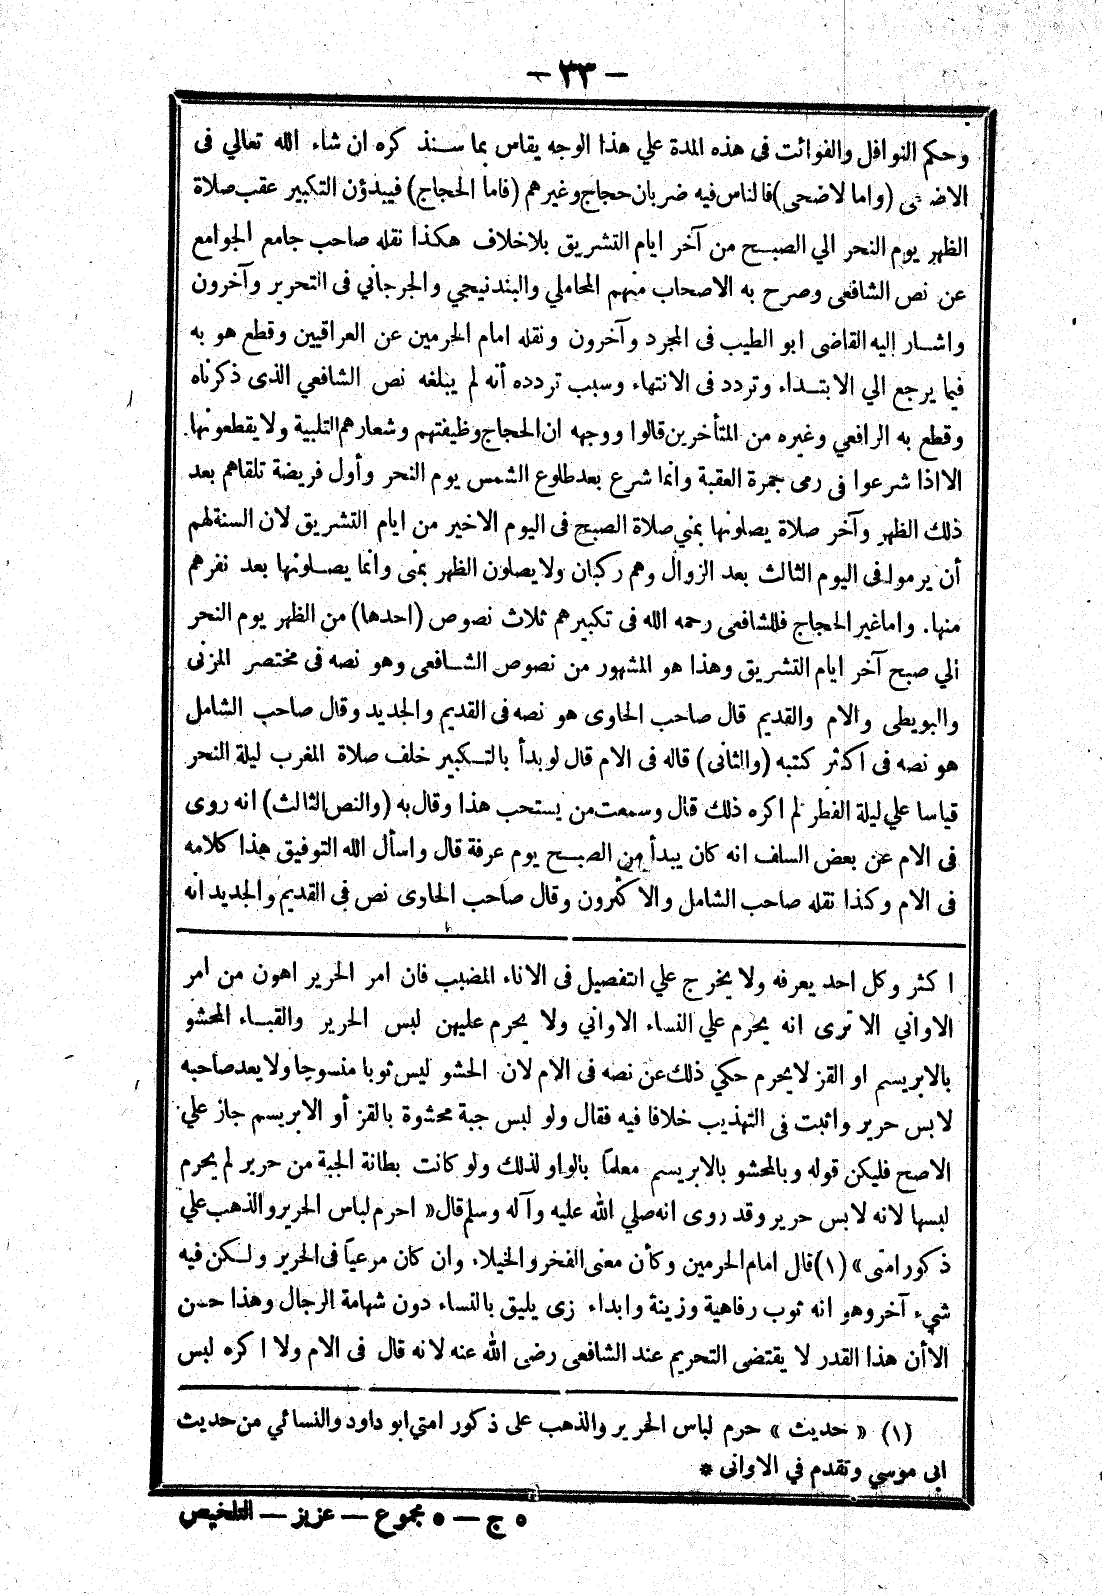 — ٣٣ —
وحكم النوافل والفوائت فى هذه المدة علي هذا الوجه يقاس بما سنذ كره ان شاء الله تعالي فى
الاضحى (واما لاضحى) فالناس فيه ضربان حجاج وغيرهم (فاما الحجاج) فيبدؤن التكبير عقب صلاة
الظهر يوم النحر الي الصبح من آخر ايام التشريق بلاخلاف هكذا نقله صاحب جامع الجوامع
عن نص الشافعى وصرح به الاصحاب منهم المحاملي والبندنيجي والجرجاني فى التحرير وآخرون
واشار إليه القاضى ابو الطيب فى المجرد وآخرون ونقله امام الحرمين عن العراقيين وقطع هو به
فيما يرجع الي الابتداء وتردد فى الانتهاء وسبب تردده أنه لم يبلغه نص الشافعي الذى ذكرناه
وقطع به الرافعي وغيره من المتأخرين قالوا ووجهه ان الحجاج وظيفتهم وشعارهم التلبية ولا يقطعونها
الا اذا شرعوا فى رمى جمرة العقبة وانما شرع بعد طلوع الشمس يوم النحر وأول فريضة تلقاهم بعد
ذلك الظهر وآخر صلاة يصلونها بمني صلاة الصبح فى اليوم الاخير من ايام التشريق لان السنة لهم
أن يرموا فى اليوم الثالث بعد الزوال وهم ركبان ولا يصلون الظهر بمنى وانما يصلونها بعد نفرهم
منها. واما غير الحجاج فللشافعى رحمه الله فى تكبيرهم ثلاث نصوص (احدها) من الظهر يوم النحر
الي صبح آخر ايام التشريق وهذا هو المشهور من نصوص الشافعى وهو نصه فى مختصر المزنى
والبويطى والام والقديم قال صاحب الحاوى هو نصه فى القديم والجديد وقال صاحب الشامل
هو نصه فى اكثر كتبه (والثانى) قاله فى الام قال لو بدأ بالتكبير خلف صلاة المغرب ليلة النحر
قياسا علي ليلة الفطر لم اكره ذلك قال وسمعت من يستحب هذا وقال به (والنص الثالث) انه روى
فى الام عن بعض السلف انه كان يبدأ من الصبح يوم عرفة قال واسأل الله التوفيق هذا كلامه
فى الام وكذا نقله صاحب الشامل والاكثرون وقال صاحب الحاوى نص في القديم والجديد انه
ا كثر وكل احد يعرفه ولا يخرج علي التفصيل فى الاناء المضبب فان امر الحرير اهون من امر
الاواني الا ترى انه يحرم علي النساء الاواني ولا يحرم عليهن لبس الحرير والقباء المحشو
بالابريسم او القز لا يحرم حكي ذلك عن نصه فى الام لان الحشو ليس ثوبا منسوجا ولا يعد صاحبه
لابس حرير واثبت فى التهذيب خلافا فيه فقال ولو لبس جبة محشوة بالقز أو الابريسم جاز علي
الاصح فليكن قوله وبالمحشو بالابريسم معلما بالواو لذلك ولو كانت بطانة الجبة من حرير لم يحرم
لبسها لانه لابس حرير وقد روى انه صلي الله عليه وآله وسلم قال « احرم لباس الحرير والذهب علي
ذكور امتى » (١) قال امام الحرمين وكأن معنى الفخر والخيلاء وان كان مرعياً فى الحرير ولكن فيه
شيء آخر وهو انه ثوب رفاهية وزينة وابداء زى يليق بالنساء دون شهامة الرجال وهذا حسن
الا أن هذا القدر لا يقتضى التحريم عند الشافعى رضى الله عنه لانه قال فى الام ولا ا كره لبس
(١) « حديث » حرم لباس الحرير والذهب على ذكور امتي ابو داود والنسائي من حديث
ابى موسي وتقدم في الاوانى *
٥ ج — ٥ مجموع — عزيز — التلخيص